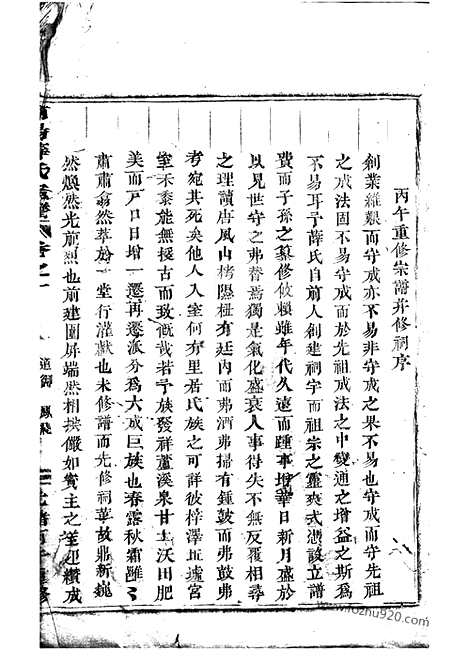 丙午重修宗譜并修祠序
創業維艱而守成亦不易非守成之果不易也守成而守先祖
之成法固不易守成而於先祖成法之中變通之增益之斯爲
不易耳予薛氏自前人創建祠宇而祖宗之靈爽式憑設立譜
費而子孫之纂修攸賴雖年代久遠而踵事增華日新月盛於
以見世守之弗替焉獨是氣化盛衰人事得失不無反覆相尋
之理讀唐風山樞隰杻有廷內而弗洒弗掃有鍾鼓而弗鼓弗
考宛其死矣他人入室何有里居氏族之可詳彼梓澤坵墟宮
室禾黍能無援古而致慨哉若予族發祥蘆溪泉甘土沃田肥
美而戸口日增一遷再遷派分爲大成巨族也春露秋霜雝雝
肅肅翕然萃於一堂行灌獻也未修譜而先修祠葺故鼎新巍
然煥然光前烈也前建圍屏端然相接儼如賓主之
氏 卷之一
道御 鳳飛
www.fozhu920.com